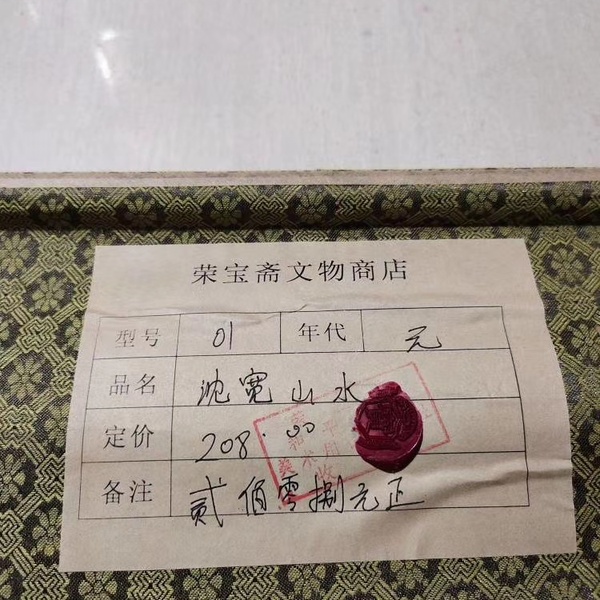 荣宝斋文物商店
型号 01 年代 元
品名 沈宽山水
定价 208.00
备注 贰佰零捌元正